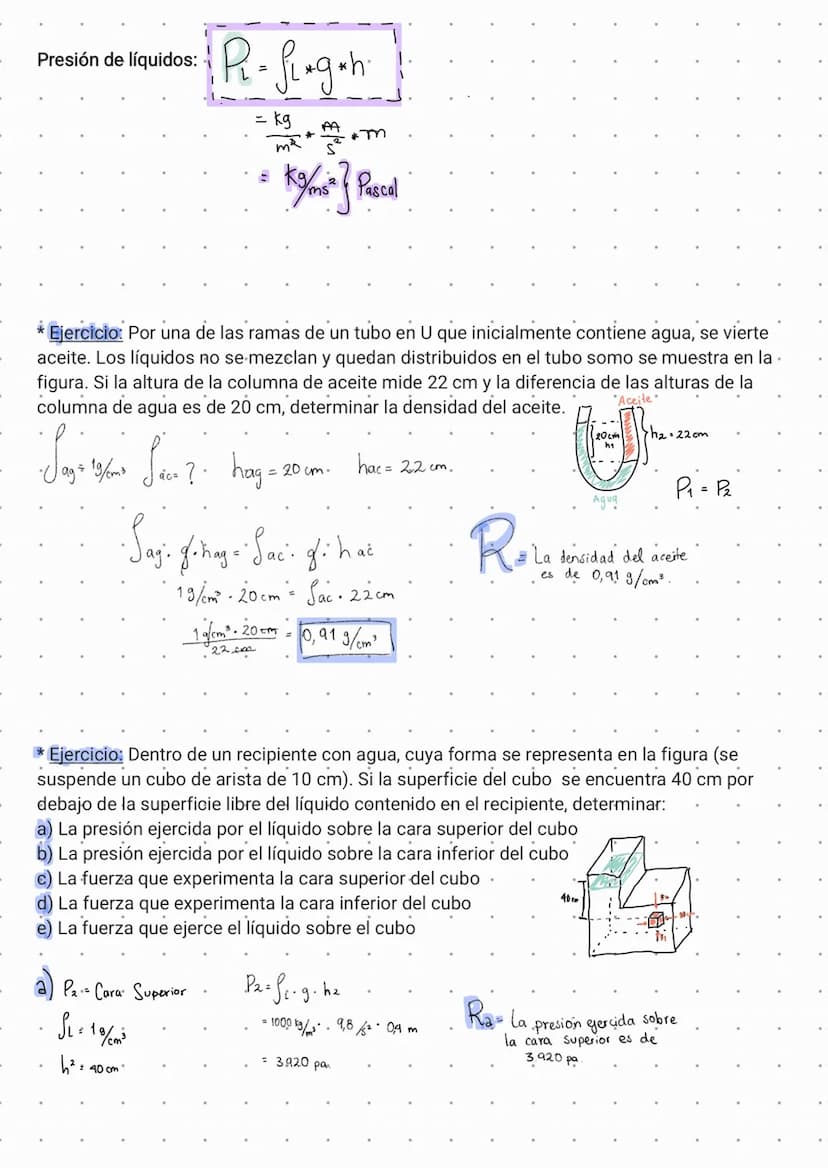 Presión de líquidos: P_L = ρ_L * g * h
= kg/m² * m/s² * m
= kg/ms² } Pascal
* Ejercicio: Por una de las ramas de un tubo en U que inicialmente contiene agua, se vierte
aceite. Los líquidos no se mezclan y quedan distribuidos en el tubo somo se muestra en la
figura. Si la altura de la columna de aceite mide 22 cm y la diferencia de las alturas de la
columna de agua es de 20 cm, determinar la densidad del aceite.
Aceite
20 cm
h1
h2 = 22 cm
Agua
P1 = P2
ρag = 1g/cm³ ρac = ? hag = 20 cm. hac = 22 cm.
ρag · g · hag = ρac · g · hac
1g/cm³ · 20 cm = ρac · 22 cm
1g/cm³ · 20 cm / 22 cm = 0,91 g/cm³
R = La densidad del aceite
es de 0,91 g/cm³.
* Ejercicio: Dentro de un recipiente con agua, cuya forma se representa en la figura (se
suspende un cubo de arista de 10 cm). Si la superficie del cubo se encuentra 40 cm por
debajo de la superficie libre del líquido contenido en el recipiente, determinar:
a) La presión ejercida por el líquido sobre la cara superior del cubo
b) La presión ejercida por el líquido sobre la cara inferior del cubo
c) La fuerza que experimenta la cara superior del cubo
d) La fuerza que experimenta la cara inferior del cubo
e) La fuerza que ejerce el líquido sobre el cubo
40cm
a) P2 = Cara Superior
ρL = 1g/cm³
h² = 40 cm
P2 = ρL · g · h2
= 1000 kg/m³ · 9,8 /s² · 0,4 m
= 3920 pa.
Ra = La presion ejercida sobre
la cara superior es de
3.920 pa.